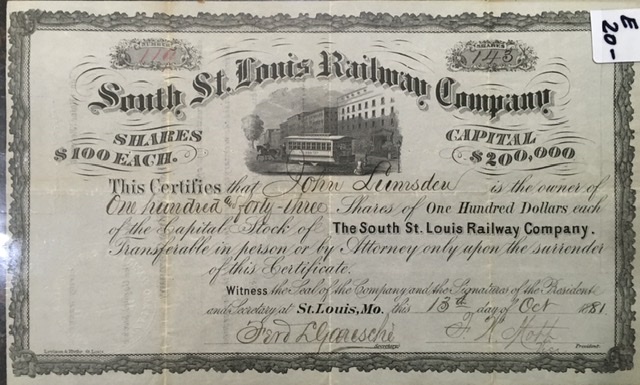 E
20-
NUMBER
SHARES
143
South St. Louis Railway Company
SHARES
$100 EACH.
CAPITAL
$200,000
This Certifies that John Lumsden is the owner of
One hundred and forty-three Shares of One Hundred Dollars each
of the Capital Stock of The South St. Louis Railway Company.
Transferable in person or by Attorney only upon the surrender
of this Certificate.
Witness the Seal of the Company and the Signatures of the President
and Secretary at St. Louis, Mo. this 13th day of Oct 1881
Ferd L Garesché
Secretary.
President.